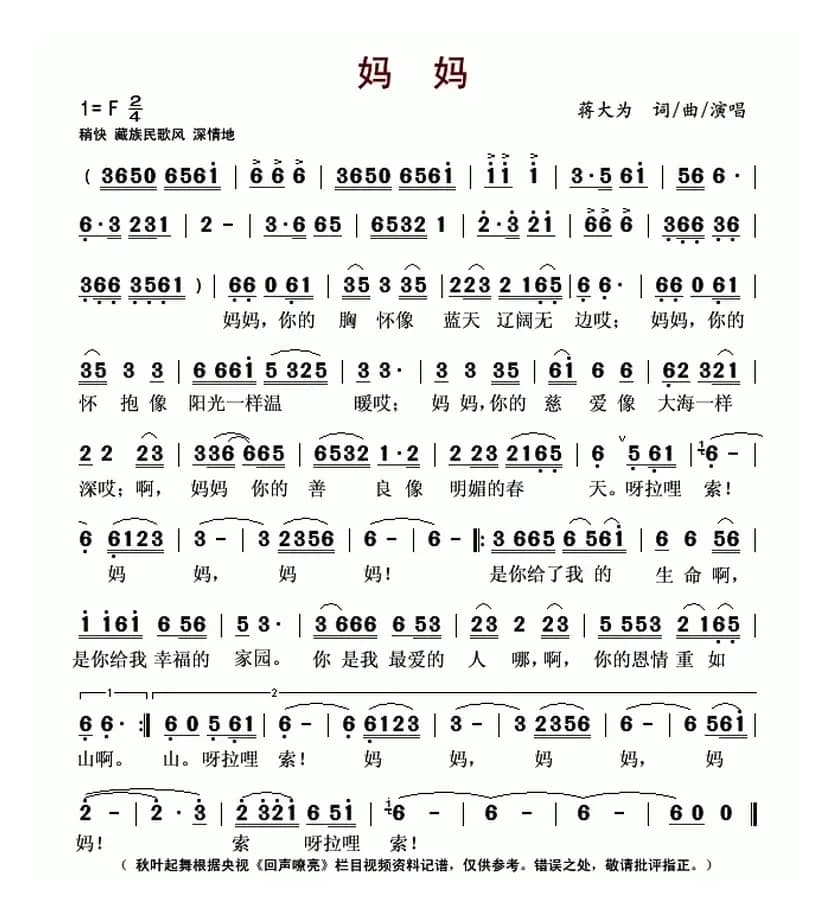 妈 妈
1= F 2/4 蒋大为 词/曲/演唱
稍快 藏族民歌风 深情地
( 3650 6561 | 6 6 6 | 3650 6561 | 11 1 | 3·5 61 | 56 6· |
6·3 231 | 2 - | 3·6 65 | 6532 1 | 2·3 21 | 66 6 | 366 36 |
366 3561 ) | 66 0 61 | 35 3 35 | 223 2 165 | 6 6· | 66 0 61 |
妈妈，你的 胸 怀像 蓝天 辽阔无 边哎； 妈妈，你的
35 3 3 | 6 661 5 325 | 3 3· | 3 3 35 | 61 6 6 | 62 321 |
怀 抱像 阳光一样温 暖哎； 妈 妈，你的 慈 爱像 大海一样
2 2 23 | 336 665 | 6532 1·2 | 2 23 2165 | 6 v 5 61 | 6 - |
深哎；啊， 妈妈 你的 善 良像 明媚的春 天。呀拉哩 索！
6 6123 | 3 - | 3 2356 | 6 - | 6 - |: 3 665 6 561 | 6 6 56 |
妈 妈， 妈 妈！ 是你给了我 的 生命啊，
1 161 6 56 | 5 3· | 3 666 6 53 | 23 2 23 | 5 553 2 165 |
是你给我 幸福的 家园。 你 是我 最爱的 人 哪，啊， 你的恩情 重如
1 2
6 6· :| 6 0 5 61 | 6 - | 6 6123 | 3 - | 3 2356 | 6 - | 6 561 |
山啊。 山。呀拉哩 索！ 妈 妈， 妈 妈， 妈
2 - | 2 · 3 | 2 321 6 51 | 6 - | 6 - | 6 - | 6 0 0 ||
妈！ 索 呀拉哩 索！
（ 秋叶起舞根据央视《回声嘹亮》栏目视频资料记谱，仅供参考。错误之处，敬请批评指正。）